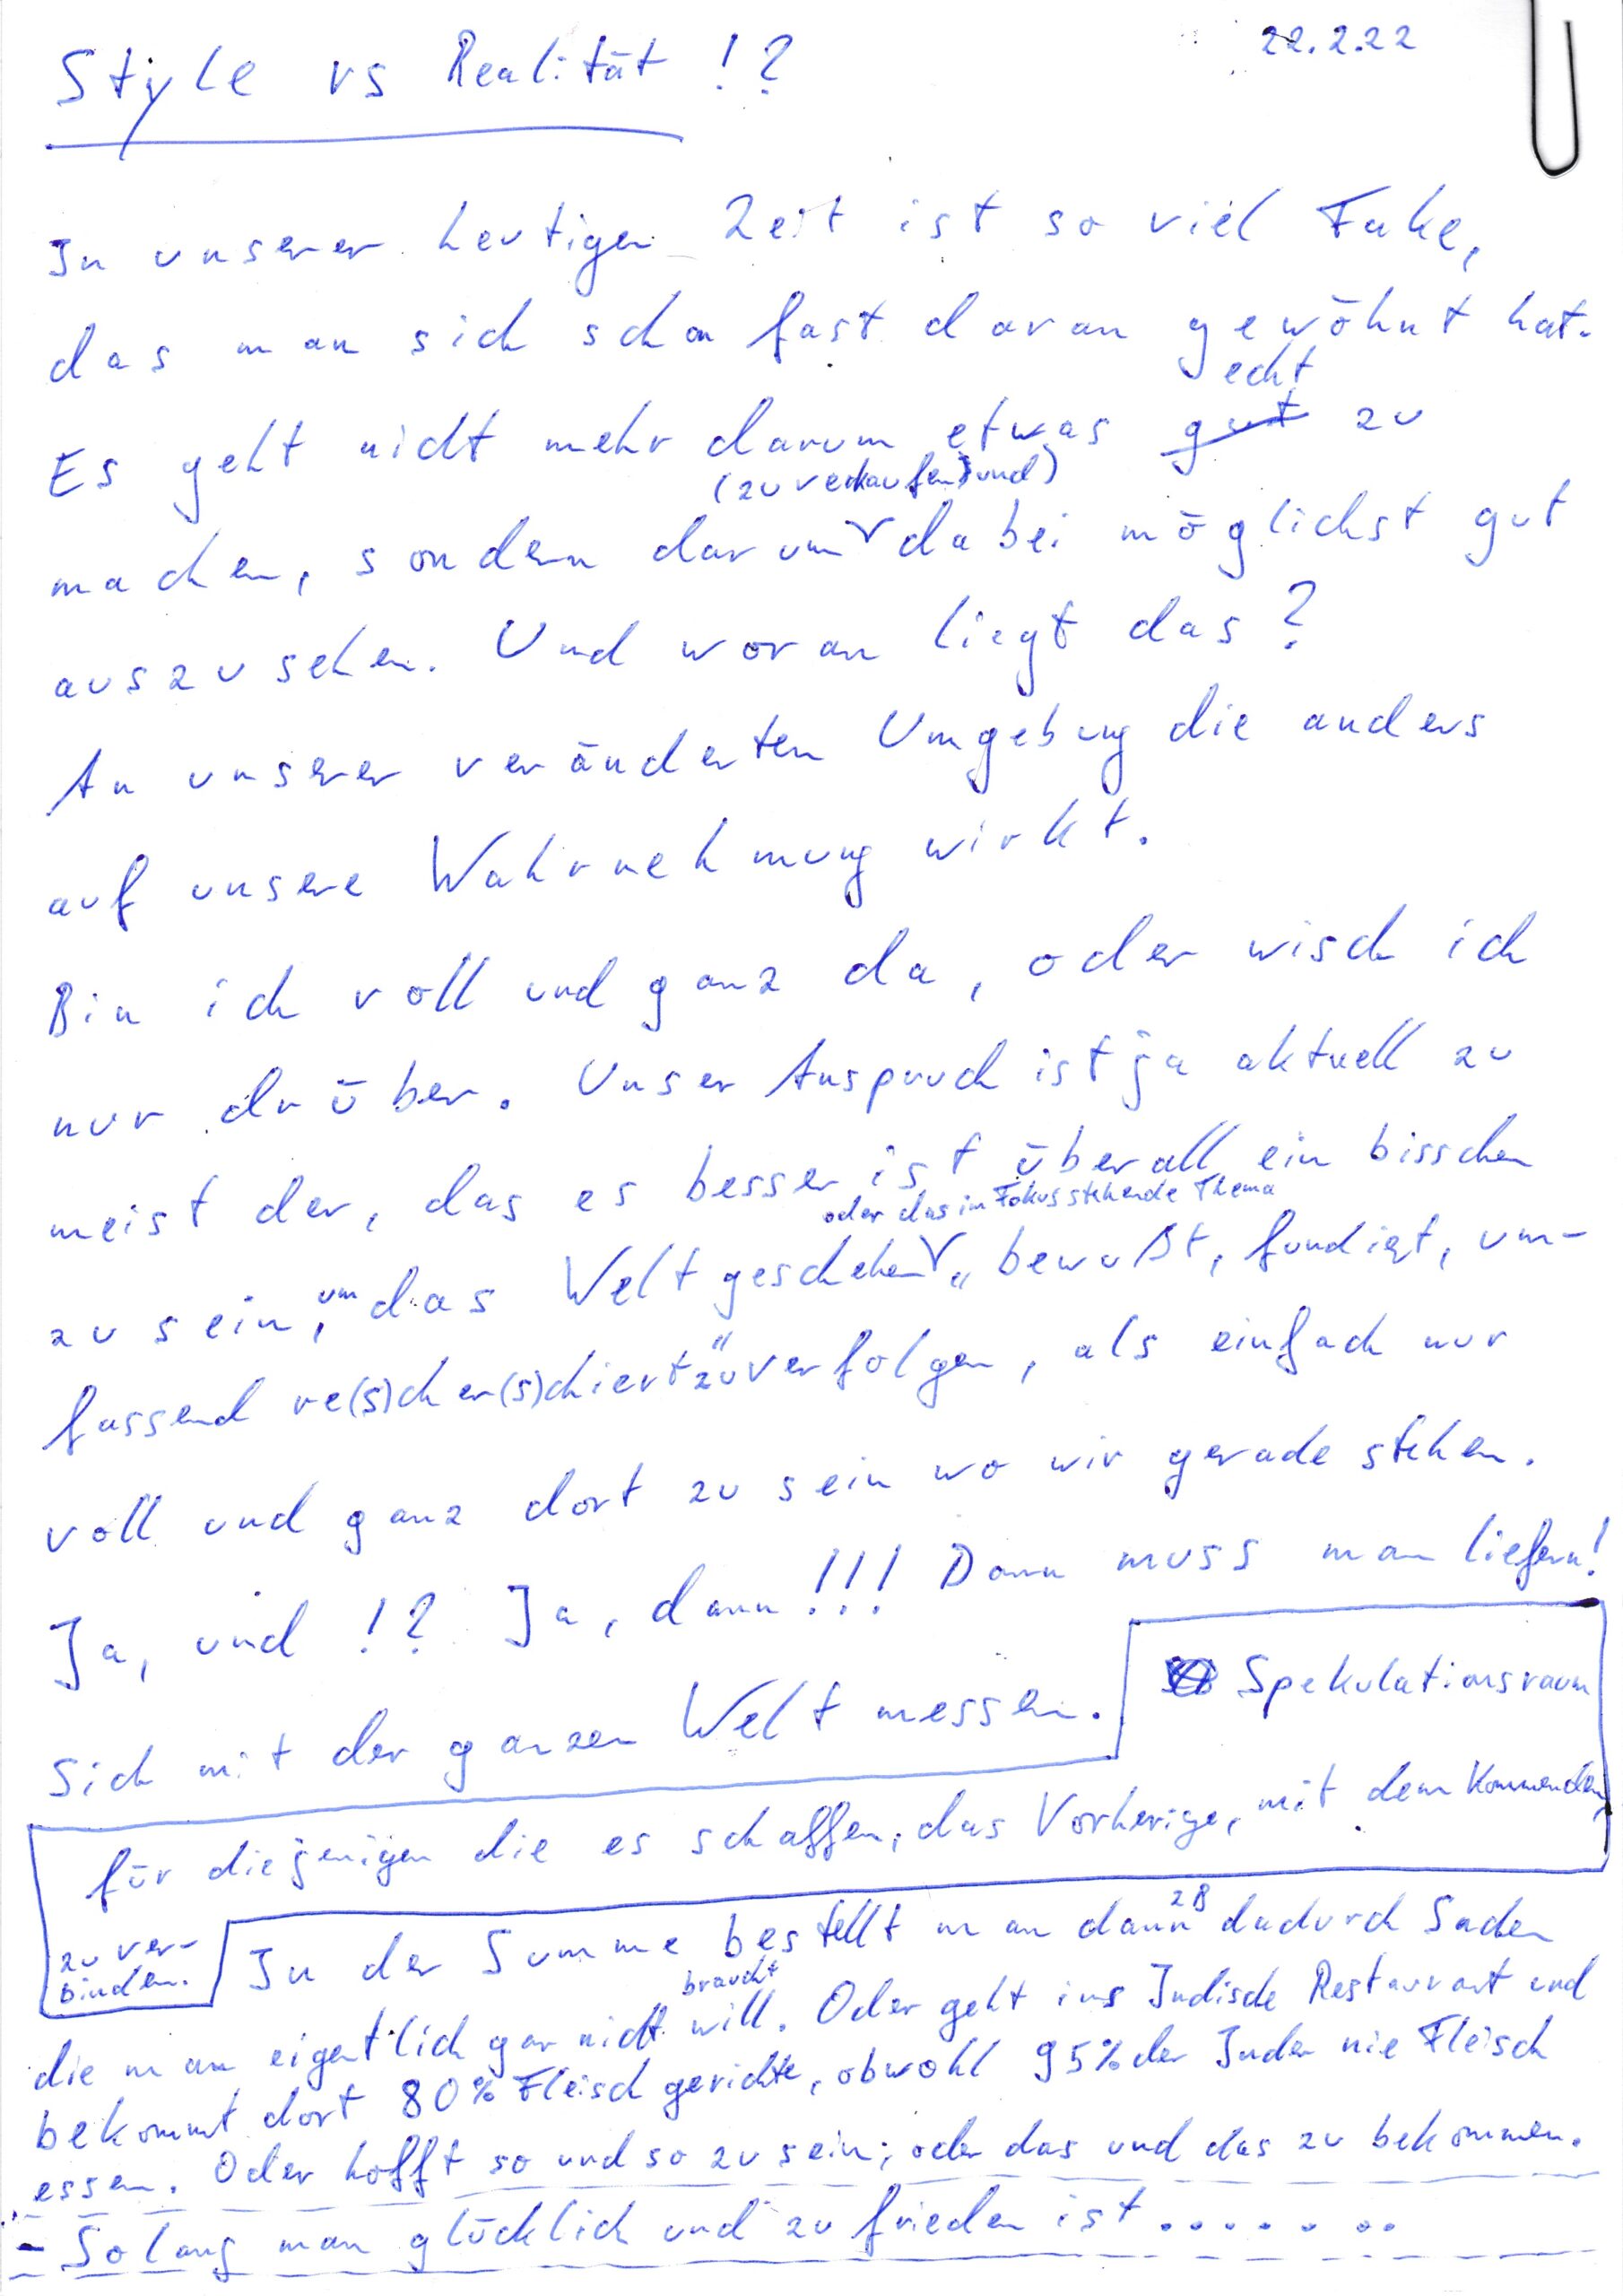 22.2.22
Style vs Realität !?
In unserer heutigen Zeit ist so viel Fake,
das man sich schon fast daran gewöhnt hat.
echt
Es geht nicht mehr darum etwas gut zu
(zu verkaufen) und)
machen, sondern darum dabei möglichst gut
auszusehen. Und woran liegt das?
An unserer veränderten Umgebung die anders
auf unsere Wahrnehmung wirkt.
Bin ich voll und ganz da, oder wisch ich
nur drüber. Unser Anspruch ist ja aktuell zu
meist der, das es besser ist überall ein bisschen
oder das im Fokus stehende Thema
zu sein, um das Weltgeschehen „bewußt, fundiert, um-
fassend re(s)cher(s)chiert" zu verfolgen, als einfach nur
voll und ganz dort zu sein wo wir gerade stehen.
Ja, und !? Ja, dann!!! Dann muss man liefern!
Sich mit der ganzen Welt messen.
Spekulationsraum
für diejenigen die es schaffen, das Vorherige, mit dem Kommenden,
zu ver-
binden.
In der Summe bestellt man dann zB dadurch Sachen
braucht
die man eigentlich gar nicht will. Oder geht ins Indische Restaurant und
bekommt dort 80% Fleischgerichte, obwohl 95% der Inder nie Fleisch
essen. Oder hofft so und so zu sein; oder das und das zu bekommen.
- Solang man glücklich und zufrieden ist ........